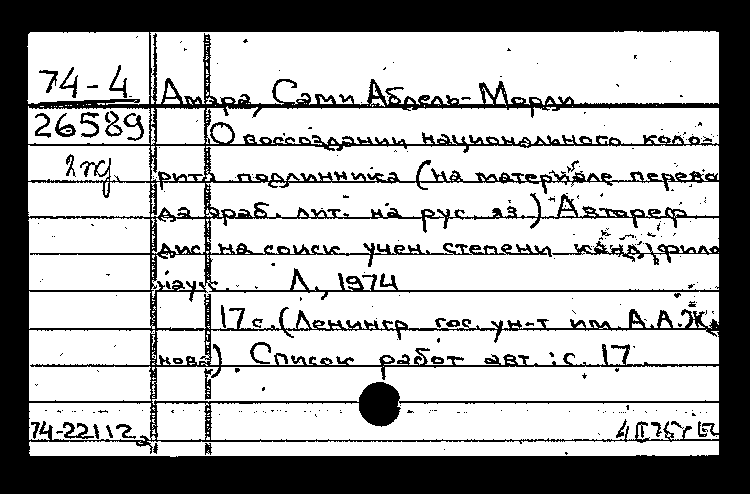 74-4
Амара, Сами Абдель-Морди
26589
О воссоздании национального коло-
2 нд.
рита подлинника (на материале перево
да араб. лит. на рус. яз.) Автореф
дис на соиск учен. степени канд фило
наук. Л., 1974
17 с. (Ленингр гос. ун-т им А.А.Жд
нова). Список работ авт.: с. 17
74-22112